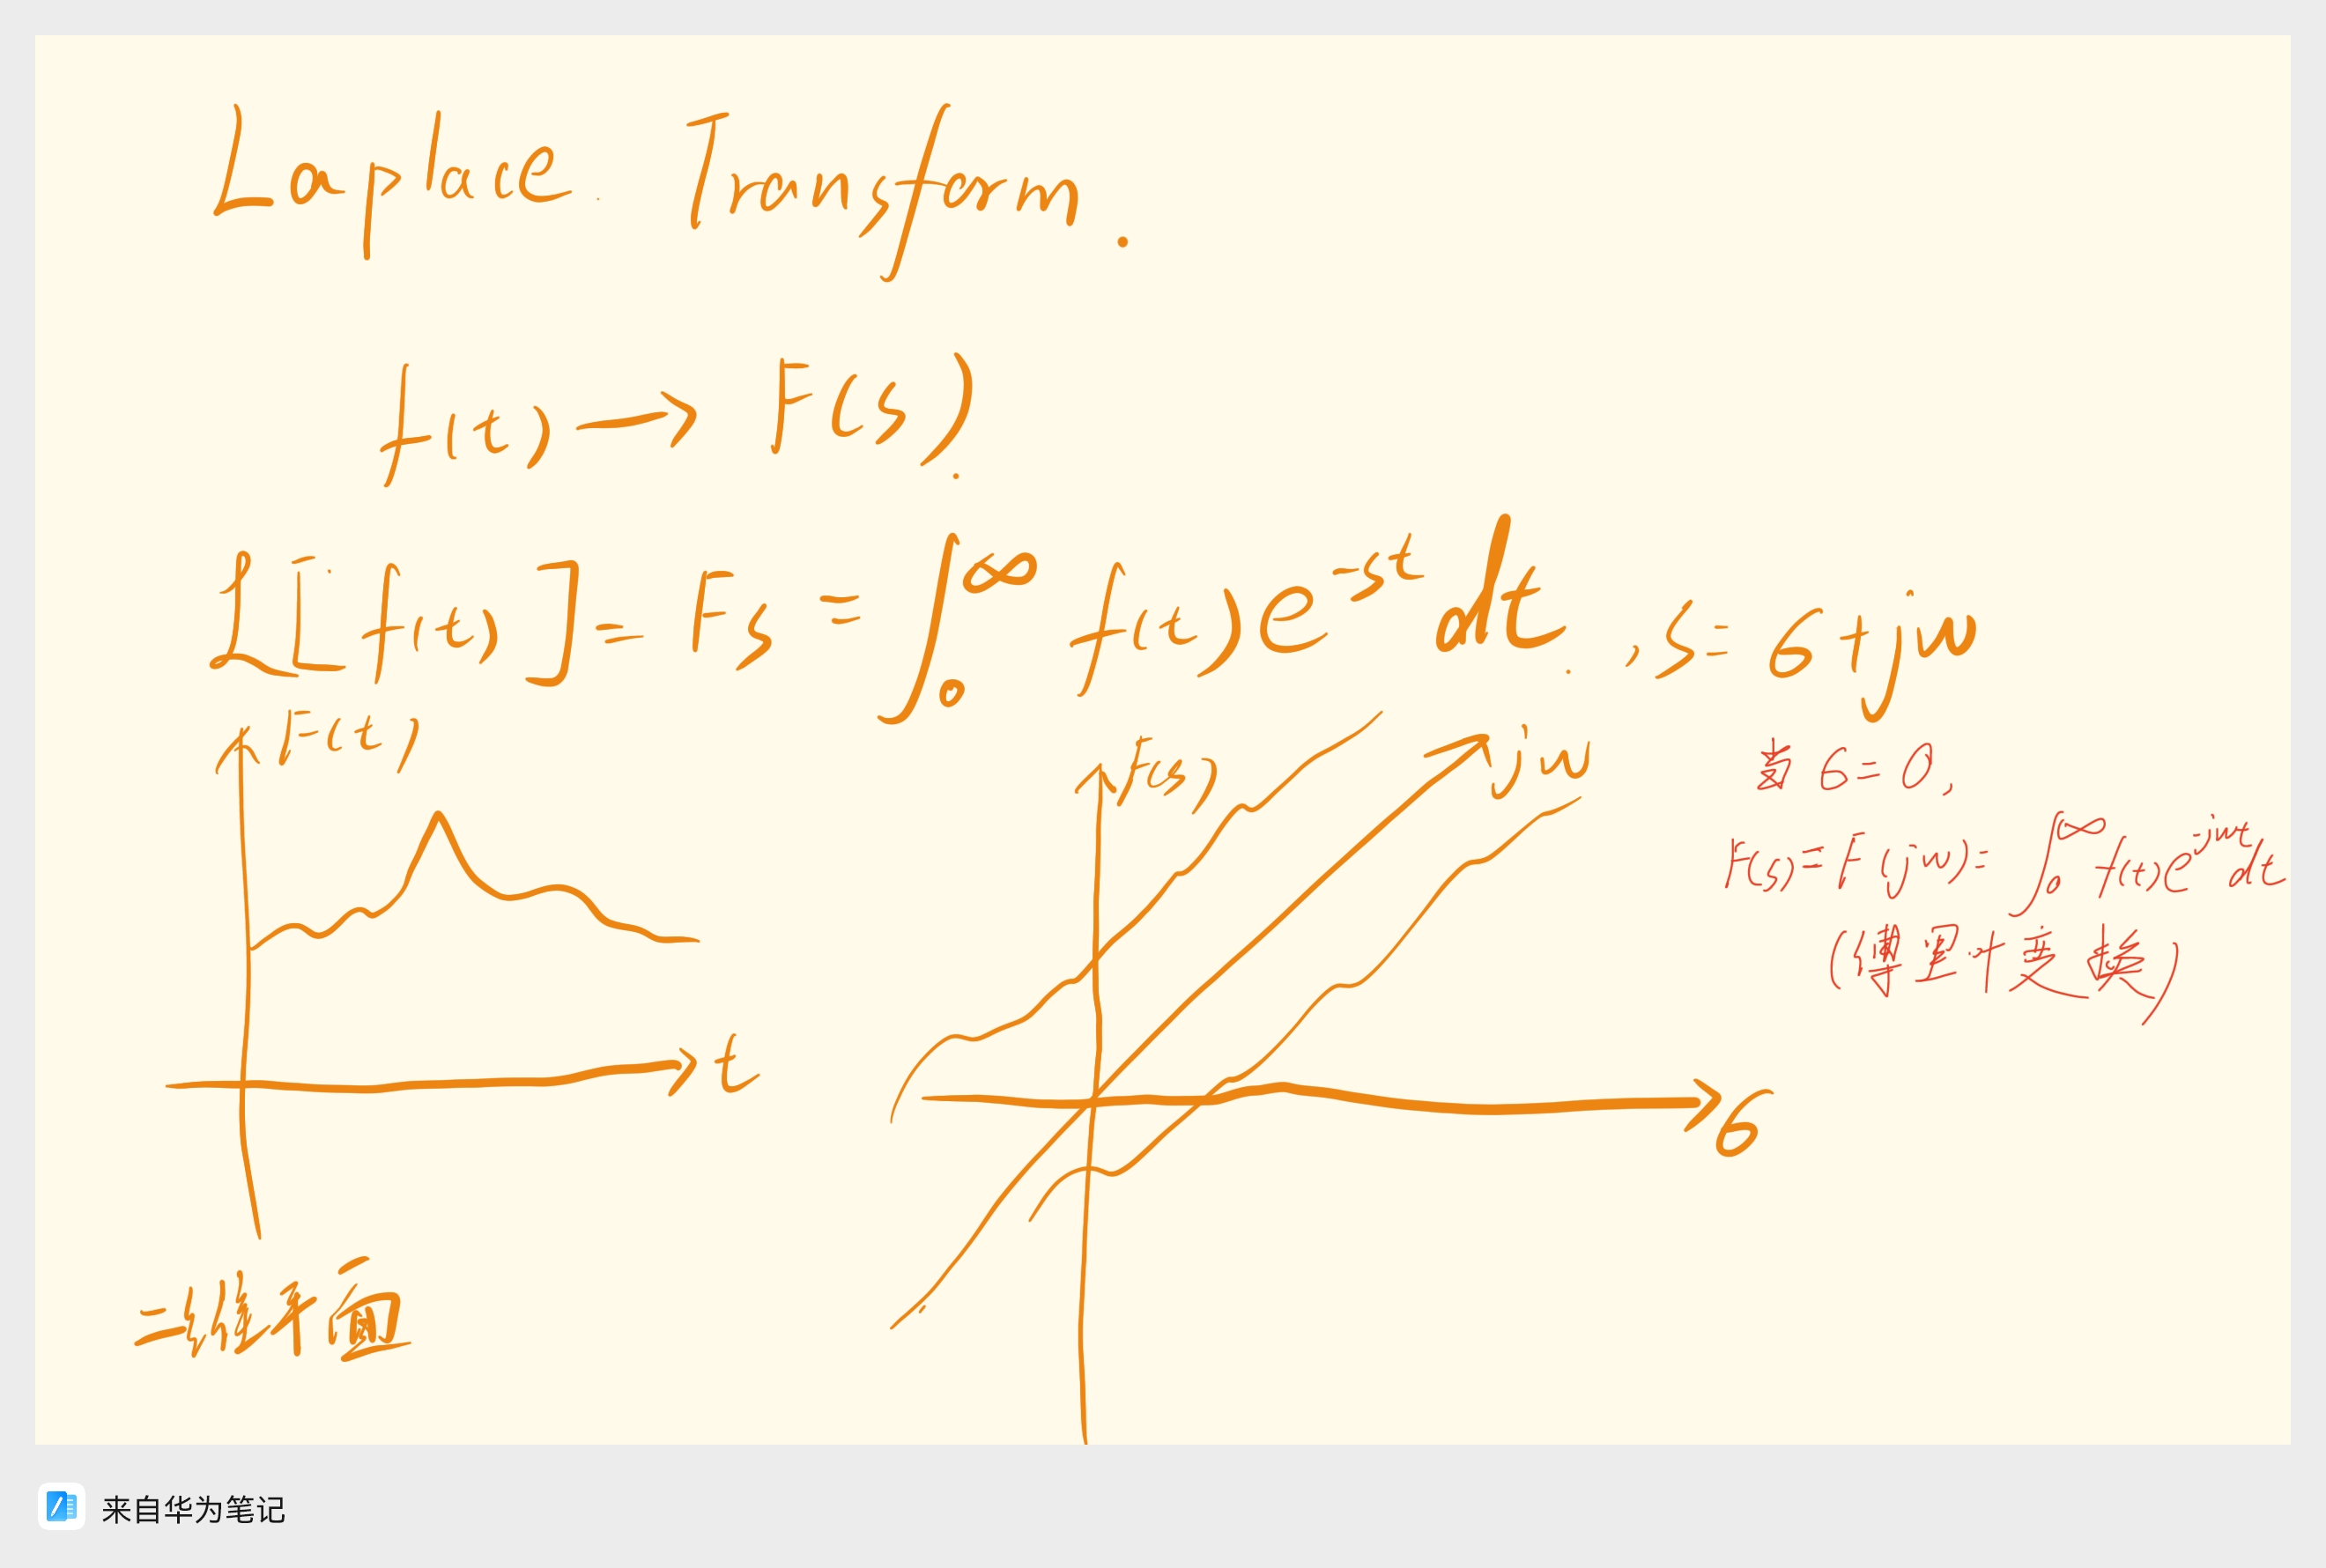 Laplace. Transform.
f(t) → F(s).
ℒ[f(t)] = Fs = ∫₀^∞ f(t)e^-st dt. , s = 6+jw
F(t)
t
二维平面
F(s)
jw
6
当6=0,
F(s)=F(jw)=∫₀^∞ f(t)e^-jwt dt
(傅里叶变换)
来自华为笔记